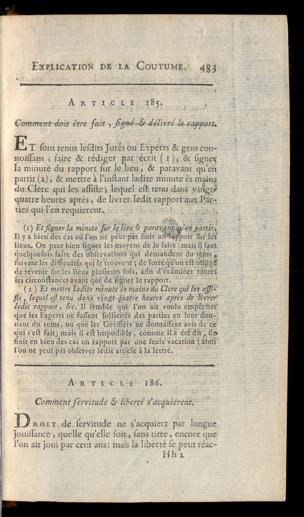 EXPLICATION DE LA COUTUME. 483
ARTICLE 185.
Comment doit être fait, signé & délivré le rapport.
ET sont tenus lesdits Jurés ou Experts & gens con-
noissans, faire & rédiger par écrit (1), & signer
la minute du rapport sur le lieu, & paravant qu'en
partir (2), & mettre à l'instant ladite minute ès mains
du Clerc qui les assiste; lequel est tenu dans vingt-
quatre heures après, de livrer ledit rapport aux Par-
ties qui l'en requierent.
(1) Et signer la minute sur le lieu & paravant qu'en partir.
Il y a bien des cas où l'on ne peut pas finir un rapport sur les
lieux. On peut bien signer les moyens de le faire: mais il faut
quelquefois faire des observations qui demandent du tems,
suivant les difficultés qui se trouvent; de sorte qu'on est obligé
de revenir sur les lieux plusieurs fois, afin d'examiner toutes
les circonstances avant que de signer le rapport.
(2) Et mettre ladite minute ès mains du Clerc qui les assis-
te, lequel est tenu dans vingt-quatre heures après de livrer
ledit rapport, &c. Il semble que l'on ait voulu empêcher
que les Experts ne fussent sollicités des parties en leur don-
nant du tems, ou que les Greffiers ne donnassent avis de ce
qui s'est fait; mais il est impossible, comme il a été dit, de
finir en bien des cas un rapport par une seule vacation: ainsi
l'on ne peut pas observer ledit article à la lettre.
ARTICLE 186.
Comment servitude & liberté s'acquierent.
DROIT de servitude ne s'acquiert par longue
jouissance, quelle qu'elle soit, sans titre, encore que
l'on ait joui par cent ans: mais la liberté se peut réac-
Hh 2